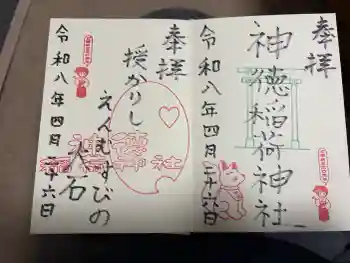 奉拝
神徳稲荷神社
令和八年四月二十六日
奉拝
授かりし
えんむすびの
人石
神徳
稲荷神社
令和八年四月二十六日